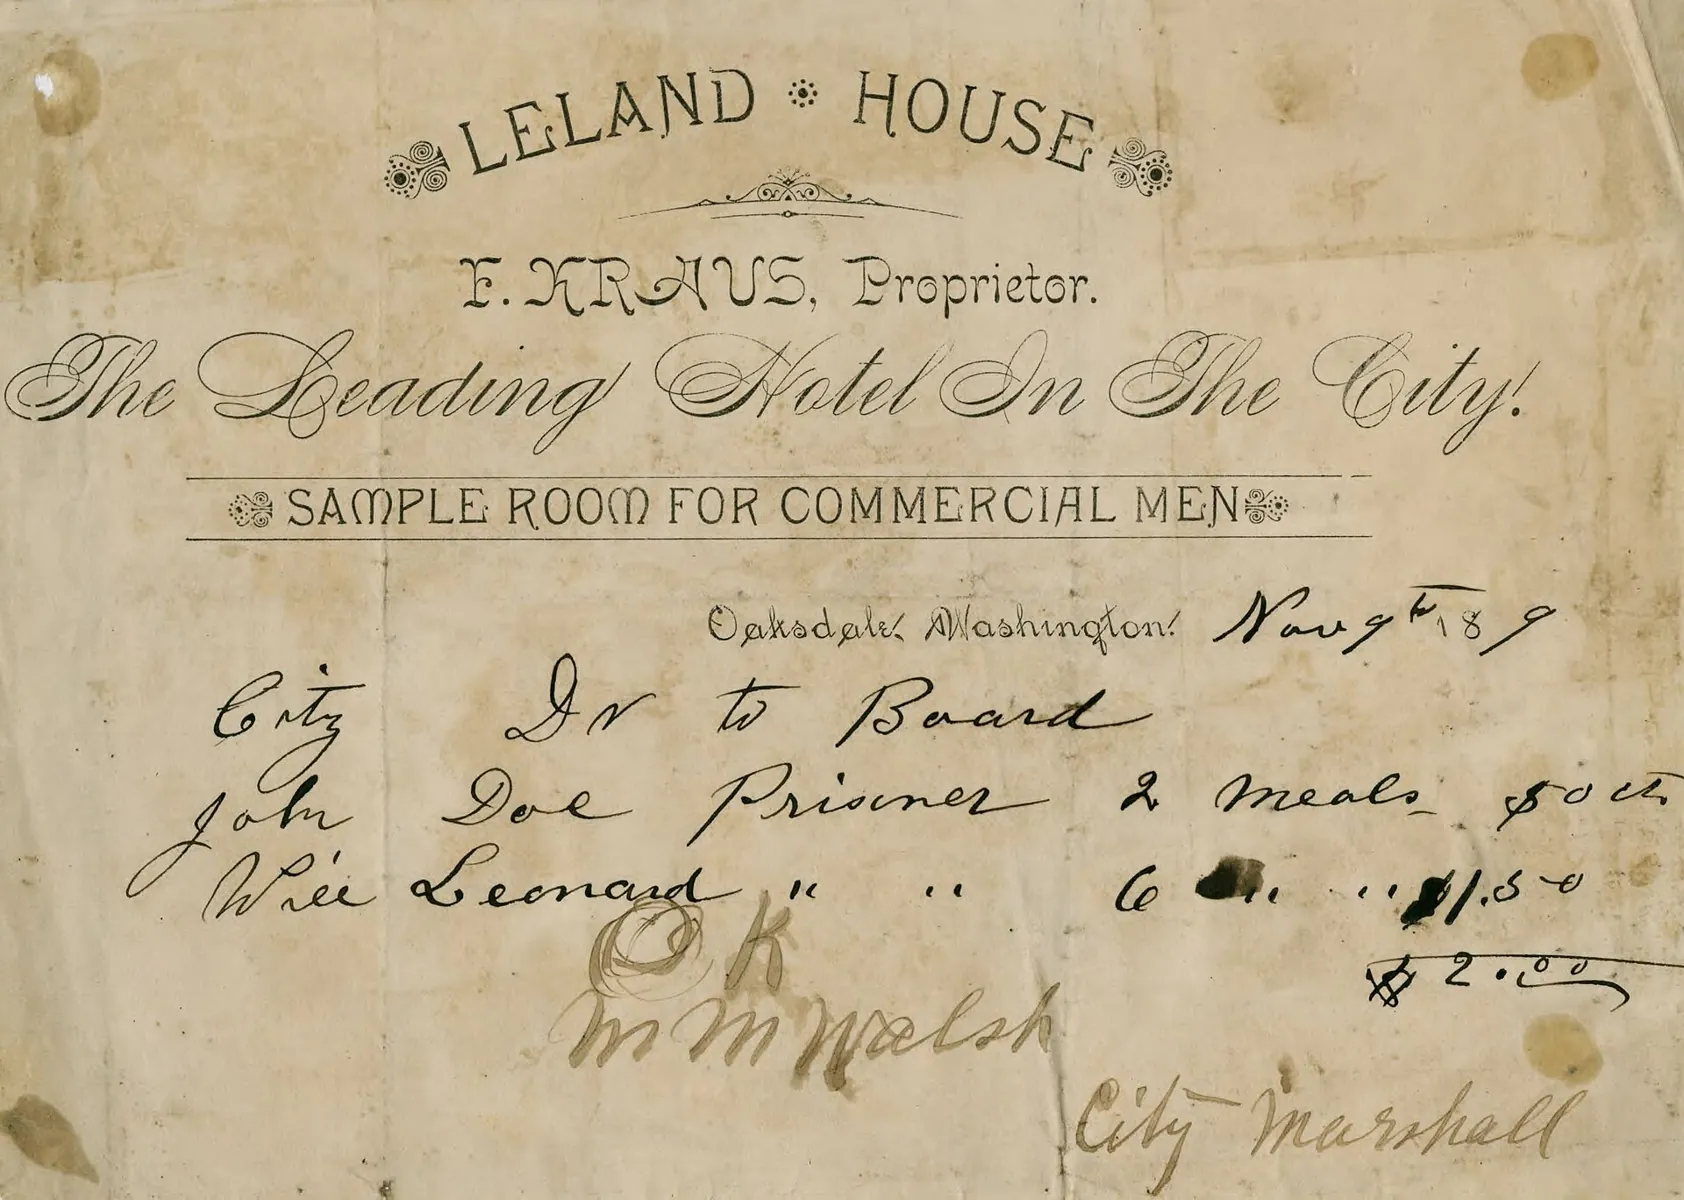 LELAND HOUSE
F. KRAUS, Proprietor.
The Leading Hotel In The City!
SAMPLE ROOM FOR COMMERCIAL MEN
Oaksdale, Washington. Nov 9th 189
City Dr to Board
John Doe Prisoner 2 meals 50 cts
Will Leonard " " 6 " " $1.50
$2.00
OK
M M Walsh
City Marshall